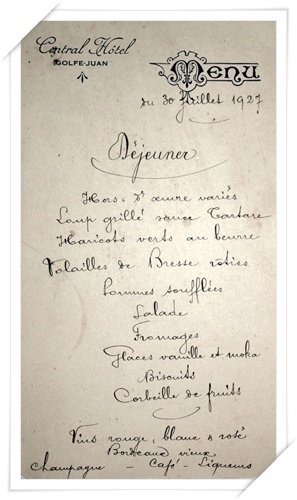 Central Hôtel
GOLFE-JUAN
Menu
du 30 Juillet 1927
Déjeuner
Hors-d'œuvre variés
Loup grillé sauce Tartare
Haricots verts au beurre
Volailles de Bresse roties
Pommes soufflées
Salade
Fromages
Glaces vanille et moka
Biscuits
Corbeille de fruits
Vins rouge, blanc & rosé
Bordeaux vieux
Champagne - Café - Liqueurs